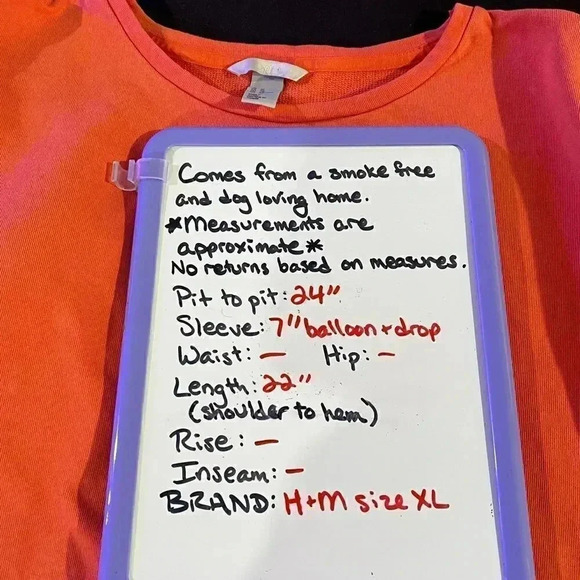 Comes from a smoke free
and dog loving home.
*Measurements are
approximate*
No returns based on measures.
Pit to pit: 24"
Sleeve: 7" balloon + drop
Waist: — Hip: —
Length: 22"
(shoulder to hem)
Rise: —
Inseam: —
BRAND: H+M size XL